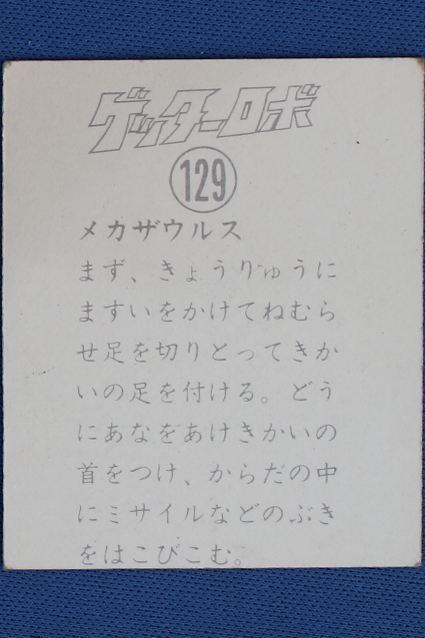 ゲッターロボ
129
メカザウルス
まず、きょうりゅうに
ますいをかけてねむら
せ足を切りとってきか
いの足を付ける。どう
にあなをあけきかいの
首をつけ、からだの中
にミサイルなどのぶき
をはこびこむ。